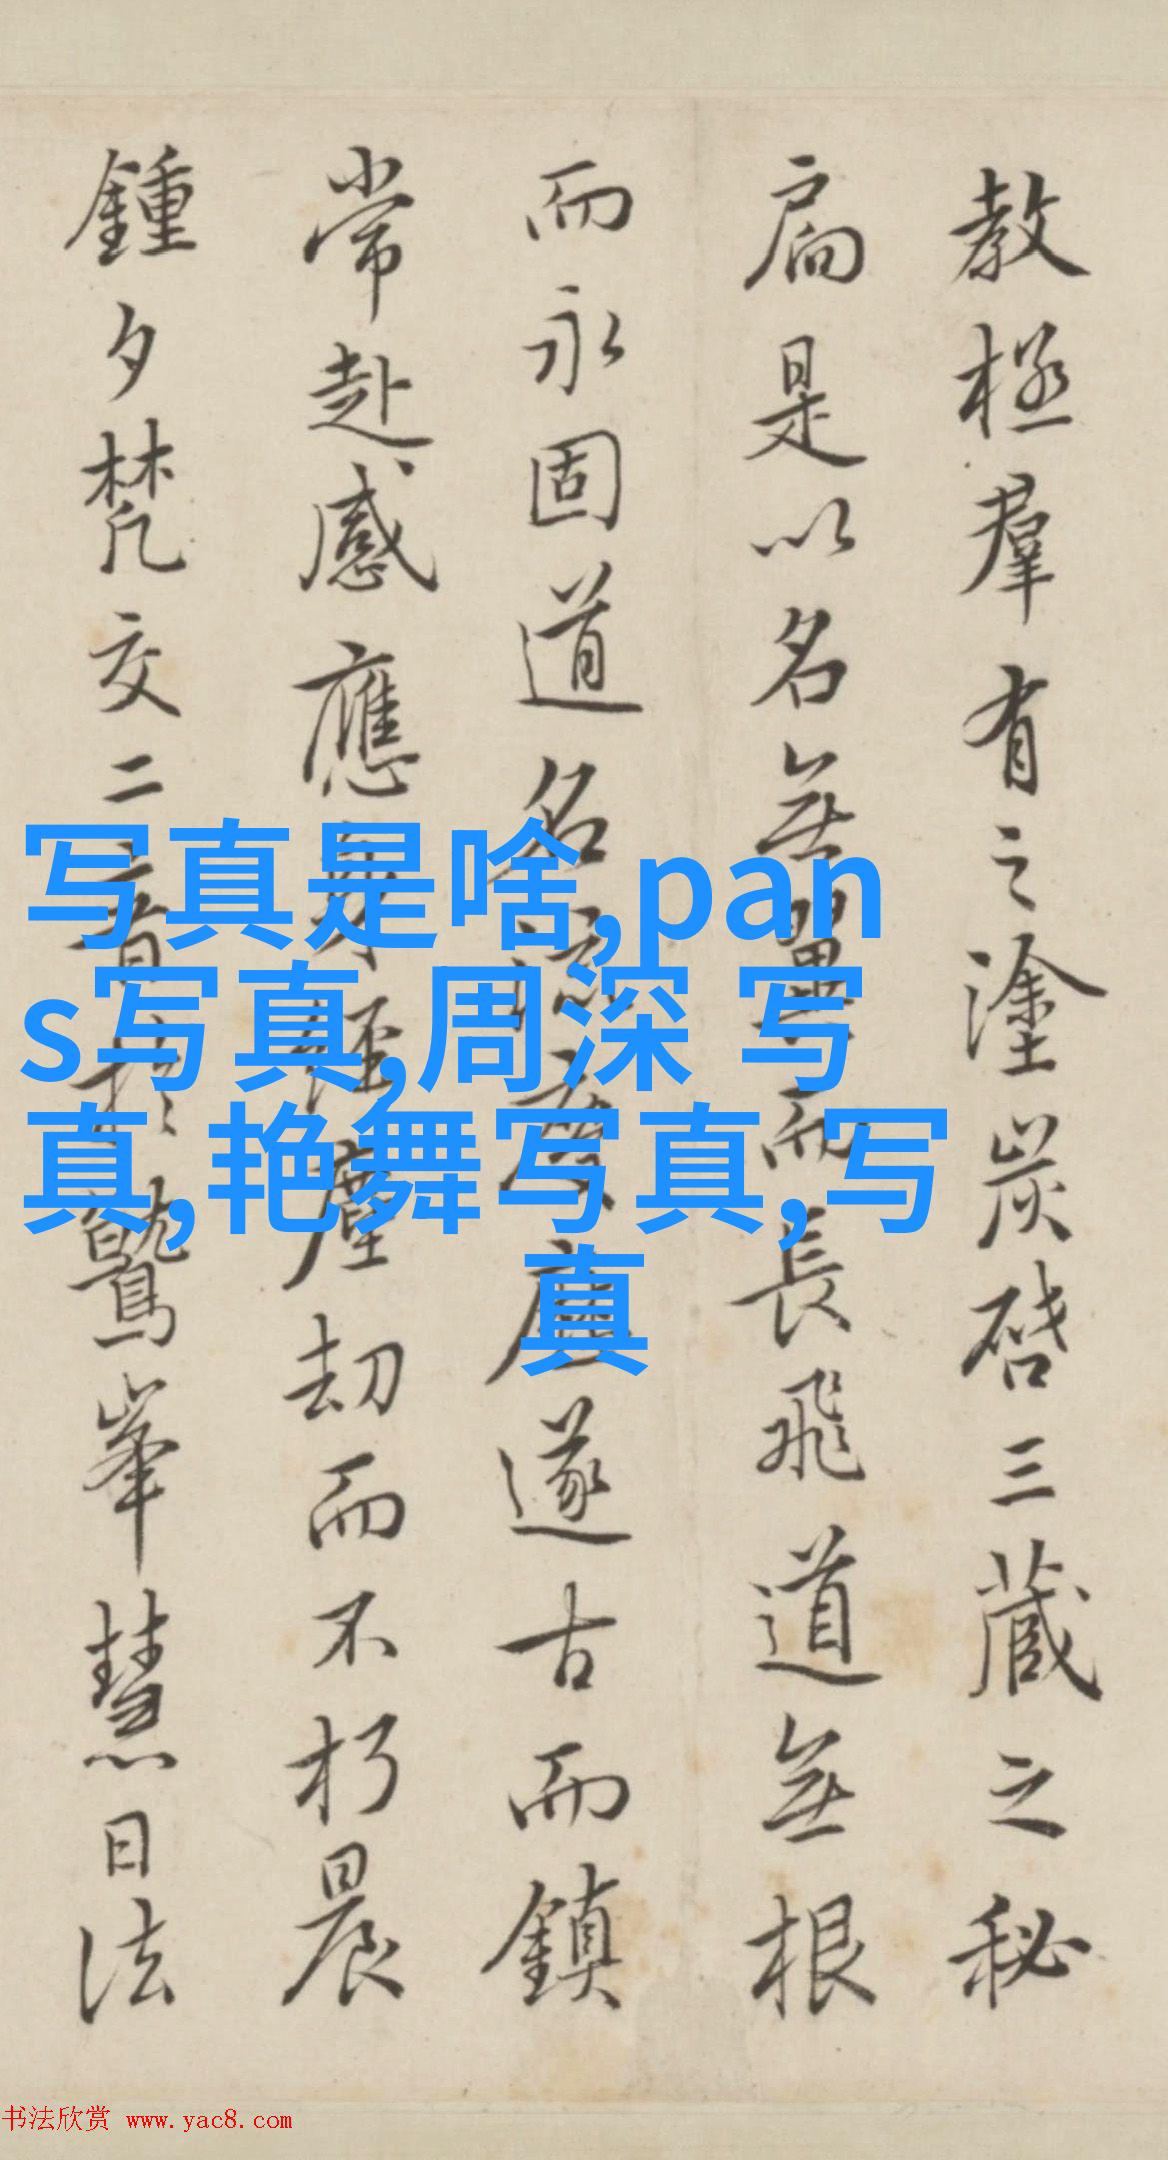 教極羣有之塗炭啓三藏之秘
扃是以名無翼而長飛道無根
而永固道名流慶歷遂古而鎮
常赴感應身經塵劫而不朽晨
鍾夕梵交二音於鷲峯慧日法
写真是啥,pan
s写真,周深 写
真,艳舞写真,写
真
书法欣赏 www.yac8.com